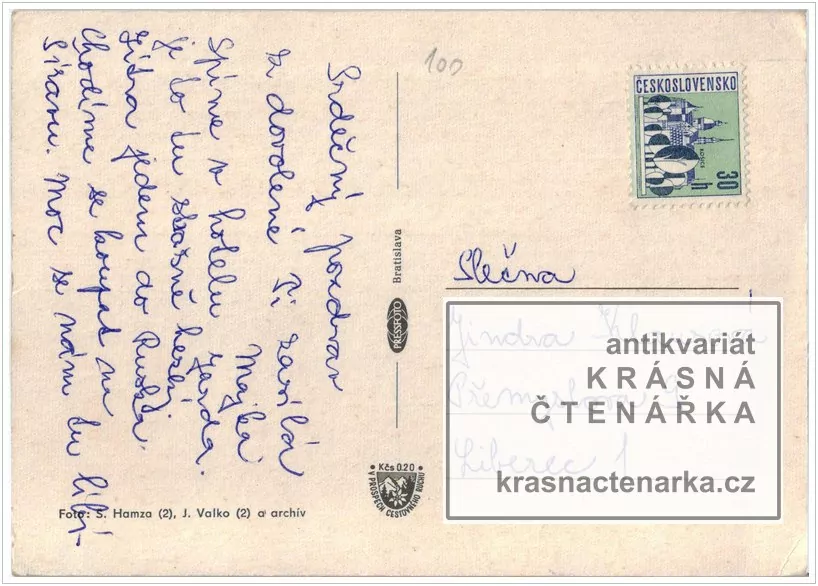 Srdečný pozdrav
z dovolené Ti zasílá
Majka
Jarda.
Spíme v hotelu
je to tu strašně hezký
Zítra jedem do Ruska.
Chodíme se koupat na
Šíravu. Moc se nám tu líbí
100
ČESKOSLOVENSKO
KOŠICE
30 h
Bratislava
PRESSFOTO
Kčs 0.20
V PROSPECH CESTOVNÉHO RUCHU
Foto: S. Hamza (2), J. Valko (2) a archív
Slečna
Jindra
Liberec 1
antikvariát
KRÁSNÁ
ČTENÁŘKA
krasnactenarka.cz